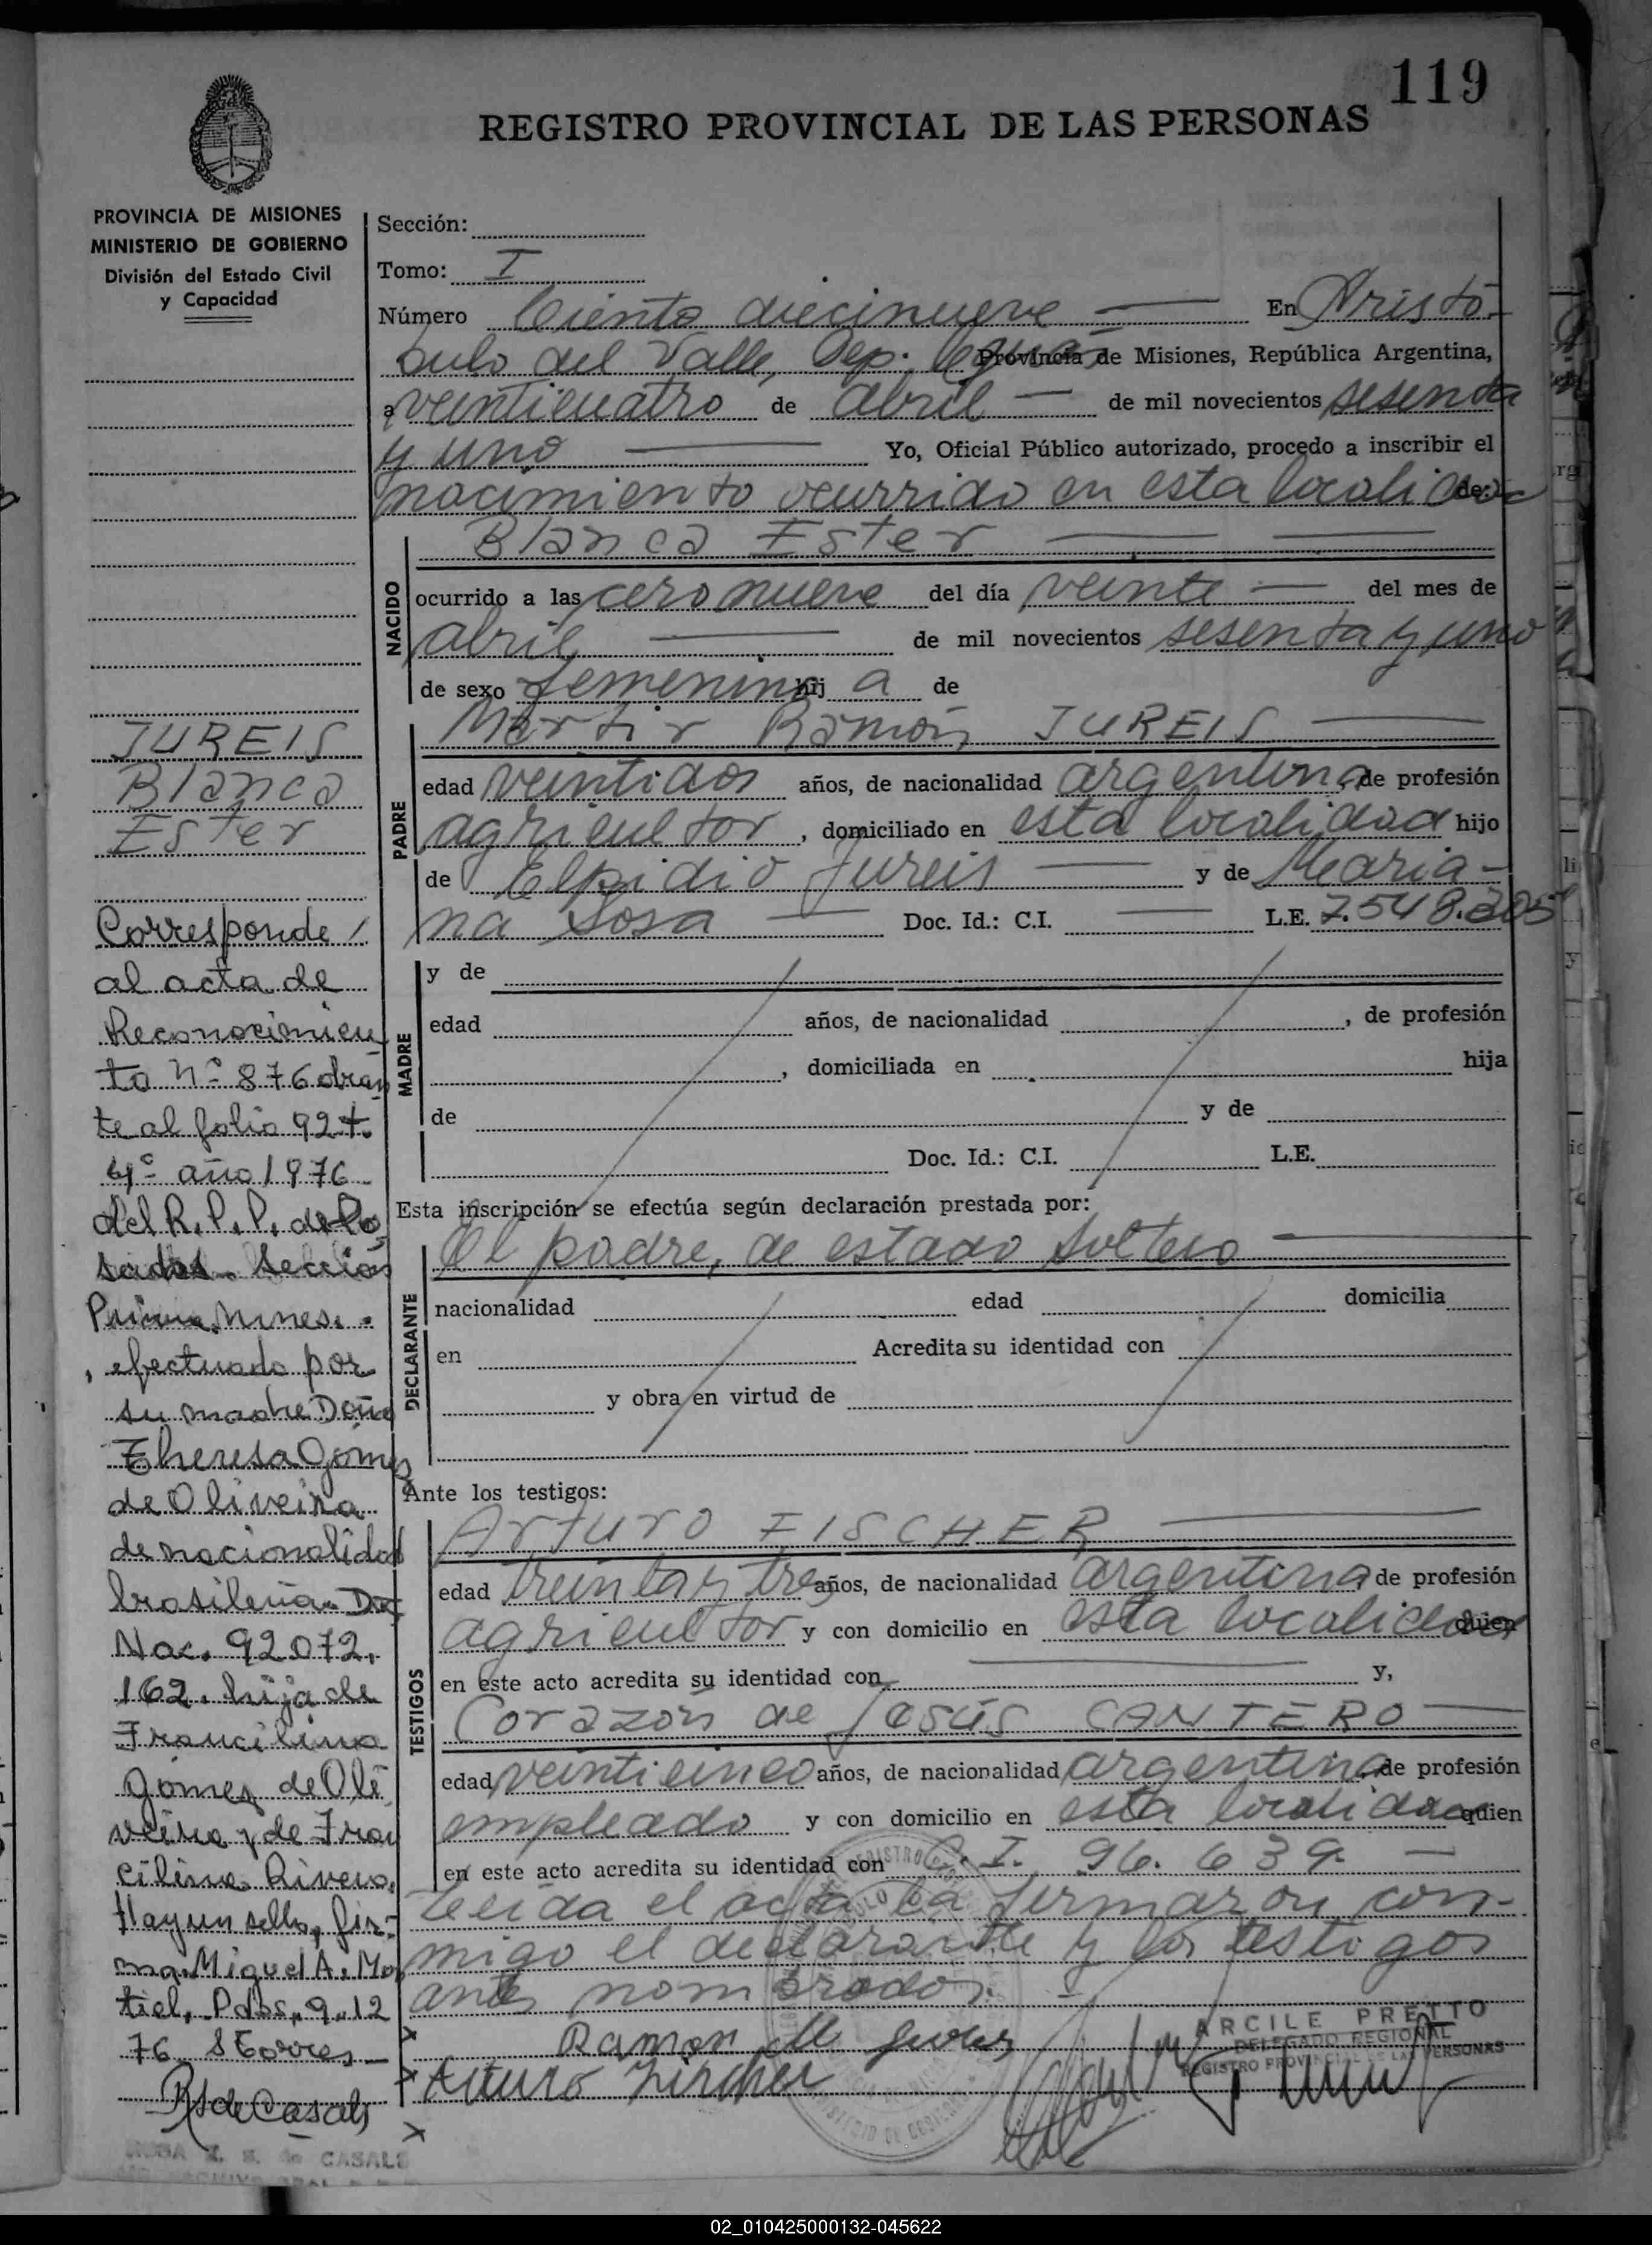 119
REGISTRO PROVINCIAL DE LAS PERSONAS
PROVINCIA DE MISIONES
MINISTERIO DE GOBIERNO
División del Estado Civil
y Capacidad
JUREIS
Blanca
Ester
Corresponde
al acta de
Reconocimien
to Nº 876 obran
te al folio 92
4º año 1976
del R.P.P. de Po
sadas. Sección
efectuado por
su madre Doña
Theresa Gómez
de Oliveira
de nacionalidad
brasileña. Doc
Nac. 92072.
162. hija de
Francilino
Gómez de Oli
veira y de Fran
cilina Rivero.
Hay un sello, fir-
ma. Miguel A. Mon
tiel. Pdas. 9.12
76 S Torres
R S de Casals
Sección:
Tomo: I
Número Ciento diecinueve — En Aristó-
bulo del Valle, Dep. Provincia de Misiones, República Argentina,
a veinticuatro de abril — de mil novecientos sesenta
y uno — Yo, Oficial Público autorizado, procedo a inscribir el
nacimiento ocurrido en esta localidad de:
NACIDO
Blanca Ester —
ocurrido a las cero nueve del día veinte — del mes de
abril — de mil novecientos sesenta y uno
de sexo femenino hij a de
PADRE
Martir Ramón JUREIS —
edad veintidos años, de nacionalidad argentina de profesión
agricultor, domiciliado en esta localidad hijo
de Elpidio Jureis — y de Maria-
na Sosa — Doc. Id.: C.I. — L.E. 7.548.205
MADRE
y de
edad años, de nacionalidad , de profesión
, domiciliada en hija
de y de
Doc. Id.: C.I. L.E.
Esta inscripción se efectúa según declaración prestada por:
DECLARANTE
El padre, de estado soltero —
nacionalidad edad domicilia
en Acredita su identidad con
y obra en virtud de
Ante los testigos:
TESTIGOS
Arturo FISCHER —
edad treinta y tres años, de nacionalidad argentina de profesión
agricultor y con domicilio en esta localidad quien
en este acto acredita su identidad con — y,
Corazón de Jesús CANTERO —
edad veinticinco años, de nacionalidad argentina de profesión
empleado y con domicilio en esta localidad quien
en este acto acredita su identidad con C.I. 96.639. —
Leída el acta la firmaron con-
migo el declarante y los testigos
antes nombrados.
Ramon M Jureis
Arturo Fischer
ARCILE PRETTO
DELEGADO REGIONAL
REGISTRO PROVINCIAL DE LAS PERSONAS
02_010425000132-045622